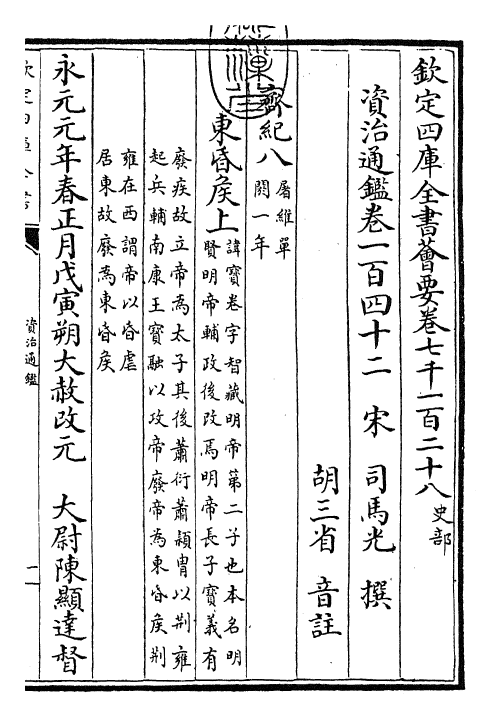 欽定四庫全書薈要卷七千一百二十八 史部
資治通鑑卷一百四十二 宋 司馬光 撰
胡三省 音註
齊紀八 屠維單
閼一年
東昏侯上 諱寶卷字智藏明帝第二子也本名明
賢明帝輔政後改焉明帝長子寶義有
廢疾故立帝為太子其後蕭衍蕭穎胄以荆雍
起兵輔南康王寶融以攻帝廢帝為東昏侯荆
雍在西謂帝以昏虐
居東故廢為東昏侯
永元元年春正月戊寅朔大赦改元 大尉陳顯達督
資治通鑑
一